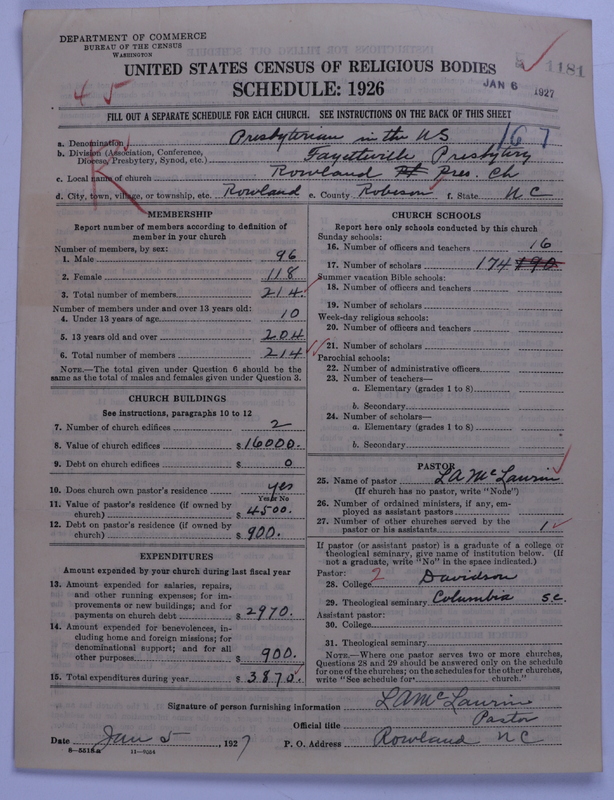 DEPARTMENT OF COMMERCE
BUREAU OF THE CENSUS
WASHINGTON
1181
JAN 6 1927
UNITED STATES CENSUS OF RELIGIOUS BODIES
SCHEDULE: 1926
45
FILL OUT A SEPARATE SCHEDULE FOR EACH CHURCH. SEE INSTRUCTIONS ON THE BACK OF THIS SHEET
a. Denomination Presbyterian in the US 167
b. Division (Association, Conference, Diocese, Presbytery, Synod, etc.) Fayetteville Presbytery
c. Local name of church Rowland Pres. Ch
d. City, town, village, or township, etc. Rowland e. County Robeson f. State N C
MEMBERSHIP
Report number of members according to definition of
member in your church
Number of members, by sex:
1. Male 96
2. Female 118
3. Total number of members 214
Number of members under and over 13 years old:
4. Under 13 years of age 10
5. 13 years old and over 204
6. Total number of members 214
NOTE.—The total given under Question 6 should be
same as the total of males and females given under Question 3.
CHURCH BUILDINGS
See instructions, paragraphs 10 to 12
7. Number of church edifices 2
8. Value of church edifices $ 16000.
9. Debt on church edifices $ 0
10. Does church own pastor's residence yes
Yes or No
11. Value of pastor's residence (if owned by
church) $ 4500.
12. Debt on pastor's residence (if owned by
church) $ 900.
EXPENDITURES
Amount expended by your church during last fiscal year
13. Amount expended for salaries, repairs,
and other running expenses; for im-
provements or new buildings; and for
payments on church debt $ 2970.
14. Amount expended for benevolences, in-
cluding home and foreign missions; for
denominational support; and for all
other purposes $ 900.
15. Total expenditures during year $ 3870
CHURCH SCHOOLS
Report here only schools conducted by this church
Sunday schools:
16. Number of officers and teachers 16
17. Number of scholars 174 190
Summer vacation Bible schools:
18. Number of officers and teachers
19. Number of scholars
Week-day religious schools:
20. Number of officers and teachers
21. Number of scholars
Parochial schools:
22. Number of administrative officers
23. Number of teachers—
a. Elementary (grades 1 to 8)
b. Secondary
24. Number of scholars—
a. Elementary (grades 1 to 8)
b. Secondary
PASTOR
25. Name of pastor L A McLaurin
(If church has no pastor, write "None")
26. Number of ordained ministers, if any, em-
ployed as assistant pastors
27. Number of other churches served by the
pastor or his assistants 1
If pastor (or assistant pastor) is a graduate of a college or
theological seminary, give name of institution below. (If
not a graduate, write "No" in the space indicated.)
Pastor:
28. College 2 Davidson
29. Theological seminary Columbia S.C.
Assistant pastor:
30. College
31. Theological seminary
NOTE.—Where one pastor serves two or more churches,
Questions 28 and 29 should be answered only on the schedule
for one of the churches; on the schedules for the other churches,
write "See schedule for church."
Signature of person furnishing information L A McLaurin
Official title Pastor
Date Jan 5, 1927 P. O. Address Rowland N C
8—5518a 11—9284